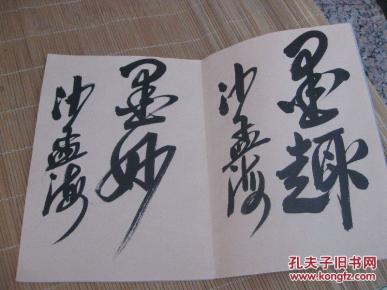 墨趣
沙孟海
墨妙
沙孟海
孔夫子旧书网